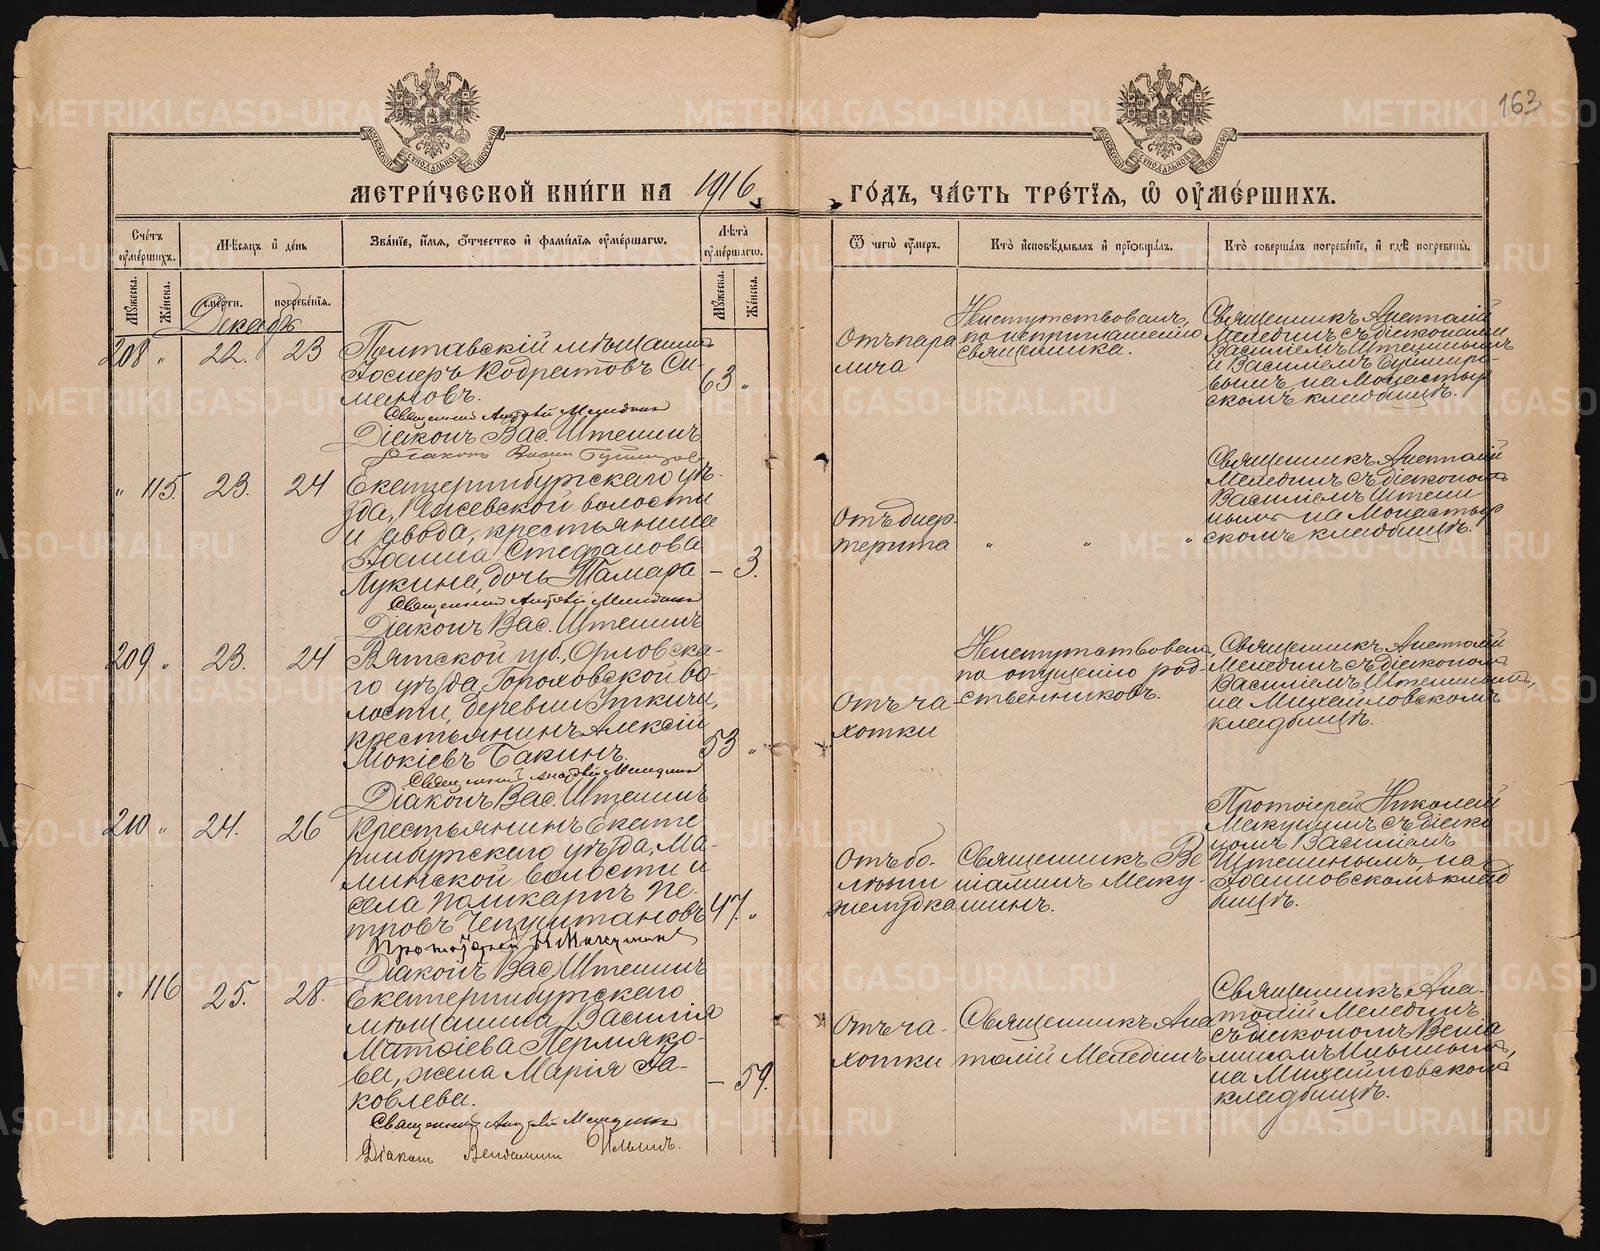 163
МЕТРИ́ЧЕСКОЙ КНИ́ГИ НА 1916 ГО́ДЪ, ЧА́СТЬ ТРЕ́ТІЯ, Ѡ҆ ОУ҆МЕ́РШИХЪ.
Сче́тъ оу҆ме́ршихъ.
Мѣ́сяцъ и҆ де́нь
Зва́нїе, и҆́мя, ѻ҆́тчество и҆ фами́лїя оу҆ме́ршагѡ.
Лѣ́та оу҆ме́ршагѡ.
Ѿ чегѡ̀ оу҆́меръ.
Кто̀ и҆сповѣ́дывалъ и҆ прїѡбща́лъ.
Кто̀ соверша́лъ погребе́нїе, и҆ гдѣ̀ погребены̀.
Му́жеска.
Же́нска.
сме́рти.
погребе́нїя.
Му́жеска.
Же́нска.
Декабрь
208 „ 22. 23
Полтавскій мѣщанинъ
Іосифъ Кодратовъ Си-
мановъ.
63 „
Священникъ Анатолій Мелединъ
Діаконъ Вас. Штенинъ
Отъ пара
лича
Неистутствовалъ,
по неприглашенію
священника.
Священникъ Анатолій
Мелединъ съ діаконами
Василіемъ Штенинымъ
и Василіемъ
на Монастыр
скомъ кладбищѣ.
„ 115. 23. 24
Екатеринбургскаго уѣ-
зда, Режевской волости
и завода, крестьянина
Іоанна Стефанова
Лукина, дочь Тамара
— 3.
Священникъ Анатолій Мелединъ
Діаконъ Вас. Штенинъ
Отъ диф-
терита
„ „ „
Священникъ Анатолій
Мелединъ съ діакономъ
Василіемъ Штени
нымъ на Монастыр
скомъ кладбищѣ.
209 „ 23. 24
Вятской губ., Орловска-
го уѣзда, Гороховской во-
лости, деревни
крестьянинъ Алексій
Мокіевъ Бакинъ.
53 „
Священникъ Анатолій Мелединъ
Діаконъ Вас. Штенинъ
Отъ ча
хотки
Неистутствовалъ,
по опущенію род
ственниковъ.
Священникъ Анатолій
Мелединъ съ діакономъ
Василіемъ Штенинымъ,
на Михайловскомъ
кладбищѣ.
210 „ 24. 26
Крестьянинъ Екате
ринбургскаго уѣзда, Ма-
минской волости и
села Поликарпъ Пе-
тровъ Чепуштановъ
47. „
Протоіерей Н Мякушинъ
Діаконъ Вас. Штенинъ
Отъ бо-
лѣзни
желудка
Священникъ Ве
ніаминъ Мяку-
шинъ.
Протоіерей Николай
Мякушинъ съ діако
номъ Василіемъ
Штенинымъ, на
Іоанновскомъ клад
бищѣ.
„ 116 25. 28.
Екатеринбургскаго
мѣщанина Василія
Матѳіева Пермяко-
ва, жена Марія Іа-
ковлева.
— 59.
Священникъ Анатолій Мелединъ
Діаконъ Веніаминъ Ильинъ.
Отъ ча-
хотки
Священникъ Ана
толій Мелединъ
Священникъ Ана-
толій Мелединъ
съ діакономъ Венiа
миномъ Ильинымъ,
на Михайловскомъ
кладбищѣ.
METRIKI.GASO-URAL.RU